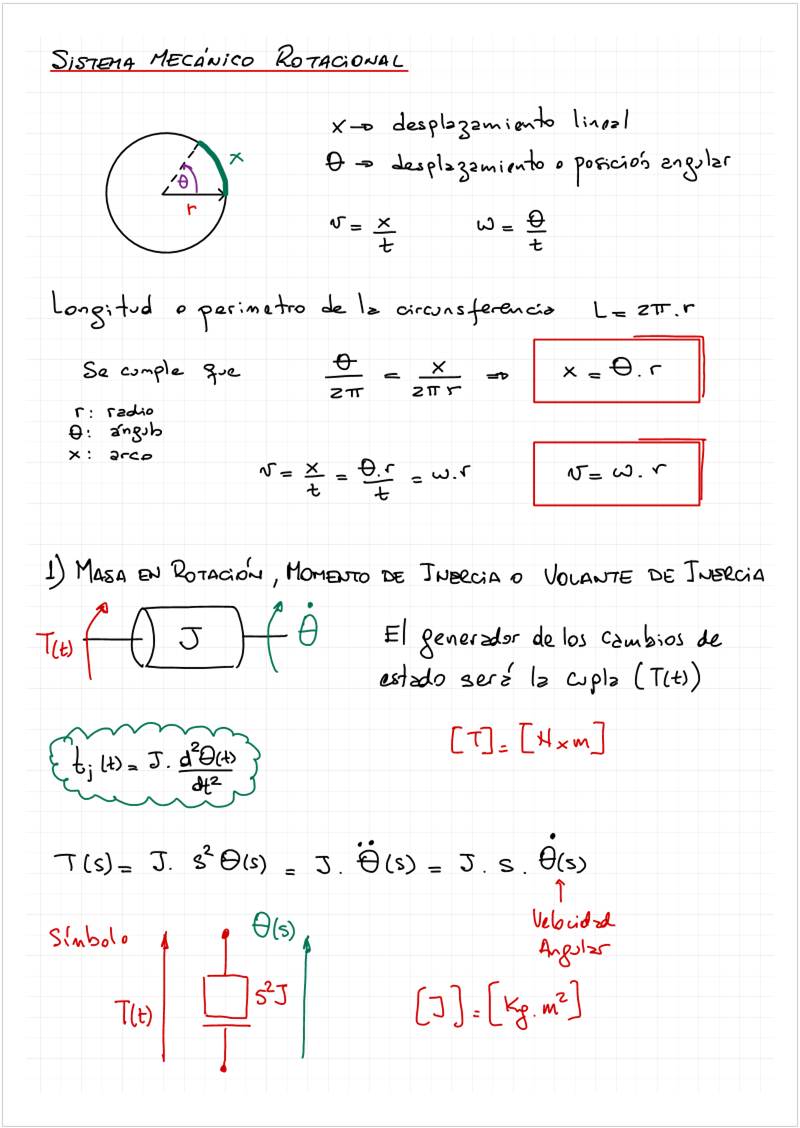 SISTEMA MECÁNICO ROTACIONAL
x → desplazamiento lineal
θ → desplazamiento o posición angular
x
θ
r
v = x/t     w = θ/t
Longitud o perimetro de la circunsferencia   L = 2π.r
Se cumple que   θ/2π = x/2πr ⇒ x = θ.r
r: radio
θ: ángulo
x: arco
v = x/t = θ.r/t = w.r   v = w.r
1) MASA EN ROTACIÓN, MOMENTO DE INERCIA O VOLANTE DE INERCIA
T(t)   J   θ̇
El generador de los cambios de
estado será la cupla (T(t))
[T] = [N x m]
tj(t) = J. d²θ(t)/dt²
T(s) = J. s² θ(s) = J. θ̈(s) = J. s. θ̇(s)
Velocidad
Angular
Símbolo   θ(s)
T(t)   s²J
[J] = [Kg.m²]